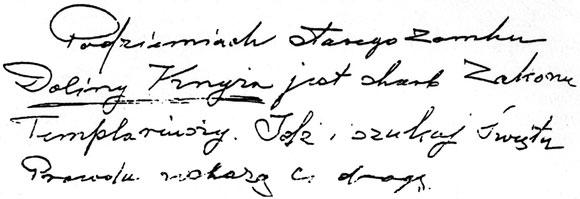 Podziemiach starego zamku
Doliny Krzyża jest skarb Zakonu
Templariuszy. Idź i szukaj święty
Prawda wskażą Ci drogę.